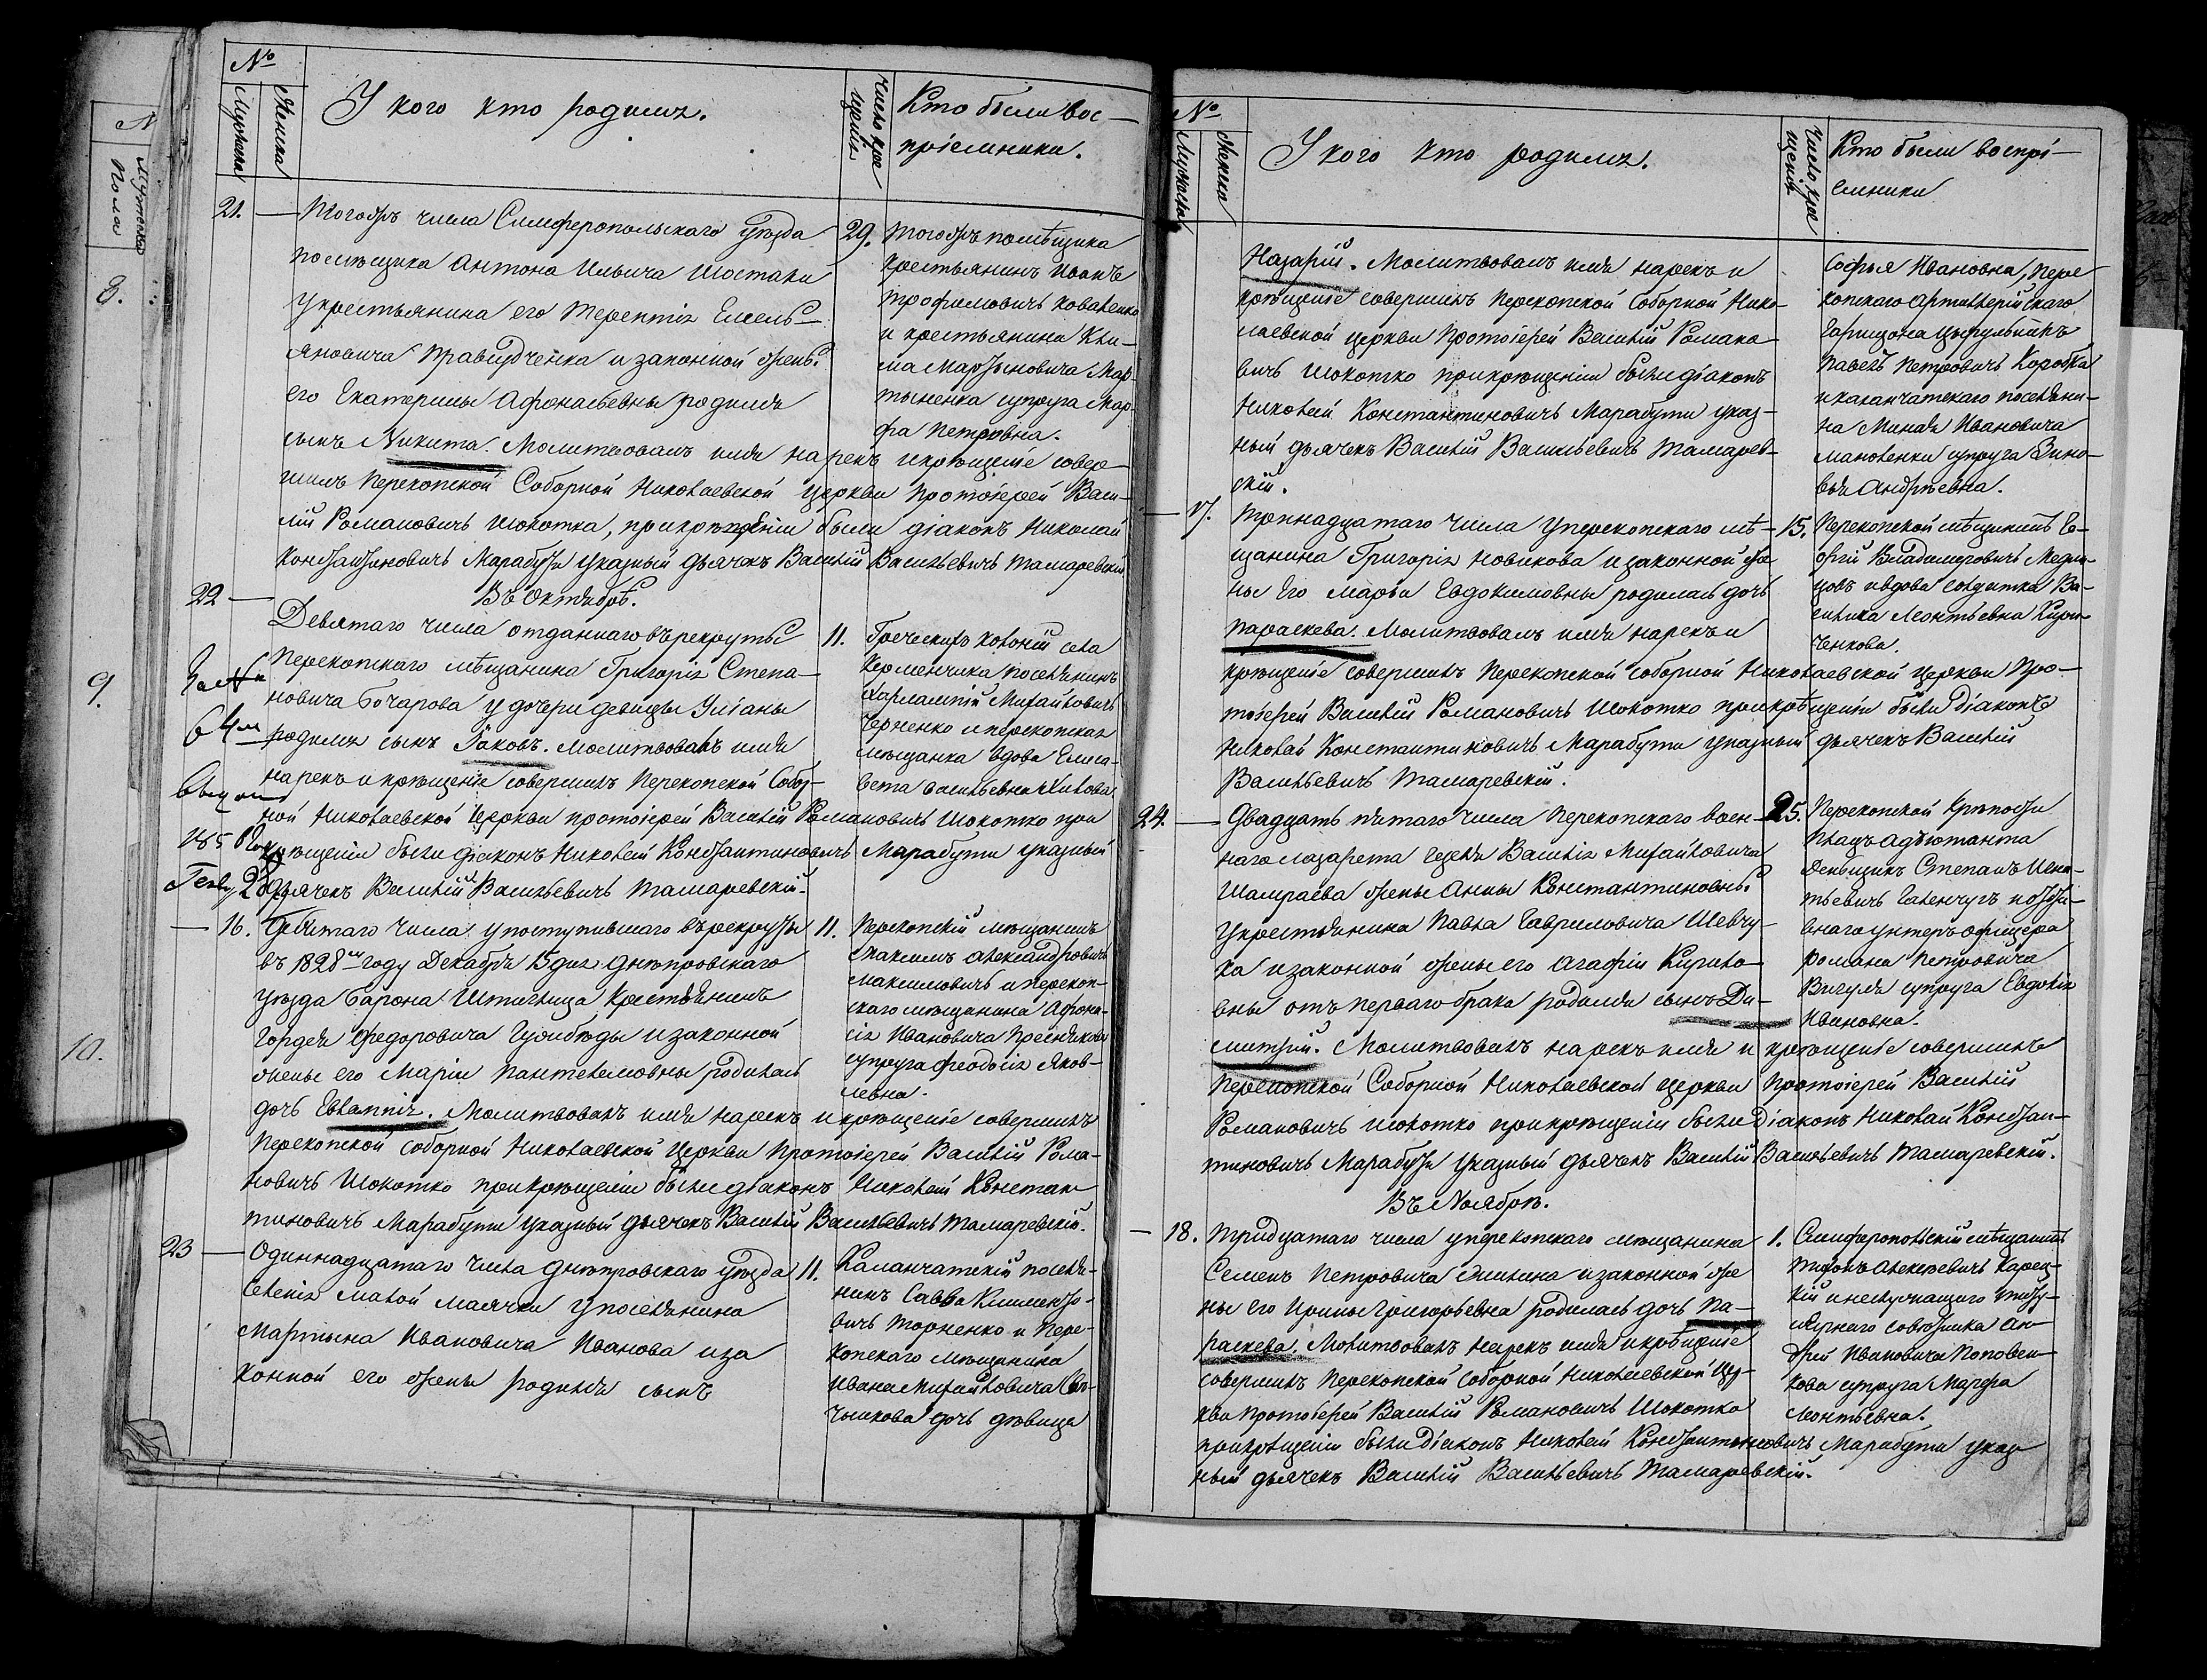 №
Мужеска
Женска
У кого кто родился.
Число кре
щенія
Кто были вос-
пріемники.
21.
Тогожъ числа Симферопольскаго уѣзда
помѣщика Антона Ильича Шостаки
у крестьянина его Терентія Емель-
яновича Правудченка и законной жены
его Екатерины Афонасьевны родился
сынъ Никита. Молитвовалъ имя нарекъ и крещеніе совер-
шилъ Перекопской Соборной Николаевской церкви протоіерей Васи-
лій Романовичъ Шокотка, при крещеніи были діаконъ Николай
Константиновичъ Марабути указный дьячекъ Василій Васильевичъ Тамаревскій
29.
Тогожъ помѣщика
крестьянинъ Иванъ
Трофимовичъ Коваленко
и крестьянина Кли-
ма Мартыновича Мар-
тыненка супруга Мар-
фа Петровна.
Въ Октябрѣ.
22
Девятаго числа отданнаго въ рекруты
Перекопскаго мѣщанина Григорія Степа-
новича Бочарова у дочери девицы Уліаны
родился сынъ Іаковъ. Молитвовалъ имя
нарекъ и крещеніе совершилъ Перекопской Собор-
ной Николаевской церкви протоіерей Василій Романовичъ Шокотко при
крещеніи были діаконъ Николай Константиновичъ Марабути указный
дьячекъ Василій Васильевичъ Тамаревскій.
11.
Греческихъ колоній села
Керменчика поселянинъ
Харлампій Михайловичъ
Черненко и перекопская
мѣщанка вдова Елиса-
вета Васильевна
16.
Девятаго числа у поступившаго въ рекруты
въ 1828м году Декабря 15 дня Днѣпровскаго
уѣзда Барона Штиглица крестьянинъ
Гордея Федоровича и законной
жены его Маріи Пантелемовны родилась
дочь Евлампія. Молитвовалъ имя нарекъ и крещеніе совершилъ
Перекопской соборной Николаевской церкви протоіерей Василій Рома-
новичъ Шокотко при крещеніи были діаконъ Николай Констан
тиновичъ Марабути указный дьячекъ Василій Васильевичъ Тамаревскій.
11.
Перекопскій мѣщанинъ
Максимъ Александровичъ
Максимовичъ и перекоп-
скаго мѣщанина Афона-
сія Ивановича
супруга Феодосія Яков-
левна.
23
Одиннадцатаго числа Днѣпровскаго уѣзда
селенія Малой Маячки у поселянина
Мартына Ивановича Иванова и за
конной его жены родился сынъ
11.
Каланчатскій поселя-
нинъ Савва
вичъ Торненко и Пере-
копскаго мѣщанина
Ивана Михайловича
дочь дѣвица
№
Мужеска
Женска
У кого кто родился.
Число кре
щенія
Кто были воспрі-
емники
Назарій. Молитвовалъ имя нарекъ и
крещеніе совершилъ Перекопской Соборной Нико-
лаевской церкви Протоіерей Василій Романо-
вичъ Шокотко при крещеніи были діаконъ
Николай Константиновичъ Марабути указ-
ный дьячекъ Василій Васильевичъ Тамарев-
скій.
Софья Ивановна, Пере
копскаго артиллерійскаго
гарнизона цырульникъ
Павелъ Петровичъ Коробка
и каланчатскаго поселяни-
на Миная Ивановича
Мановенки супруга Зино-
вья Андрѣевна.
17.
Тринадцатаго числа у перекопскаго мѣ-
щанина Григорія Новикова и законной же
ны его Марьи Евдокимовны родилась дочь
Параскева. Молитвовалъ имя нарекъ и
крещеніе совершилъ Перекопской Соборной Николаевской церкви Про-
тоіерей Василій Романовичъ Шокотко при крѣщеніи были діаконъ
Николай Константиновичъ Марабути указный дьячекъ Василій
Васильевичъ Тамаревскій.
15.
Перекопской мѣщанинъ Ге-
оргій Владимировичъ
вдова солдатка Ва-
силиса Леонтьевна Кири-
ченкова.
24.
Двадцать пятаго числа Перекопскаго воен-
наго лазарета Василія Михайловича
Шамраева жены Анны Константиновны
у крестьянина Павла Гавриловича Шевчу-
ка и законной жены его Агафіи Кирило-
вны отъ перваго брака родился сынъ Ди-
митрій. Молитвовалъ нарекъ имя и крещеніе совершилъ
Перекопской Соборной Николаевской церкви Протоіерей Василій
Романовичъ Шокотко при крещеніи были діаконъ Николай Констан-
тиновичъ Марабути указный дьячекъ Василій Васильевичъ Тамаревскій.
25.
Перекопской крѣпости
плацъ адъютанта
деньщикъ Степанъ Игна-
тьевичъ
унтеръ офицера
Романа Петровича
супруга Евдокія
Ивановна.
Въ Ноябрѣ.
18.
Тридцатаго числа у перекопскаго мѣщанина
Семенъ Петровича и законной же
ны его Ирины Григорьевна родилась дочь Па-
раскева. Молитвовалъ нарекъ имя и крѣщеніе
совершилъ Перекопской Соборной Николаевской Цер-
кви Протоіерей Василій Романовичъ Шокотко
при крещеніи были діаконъ Николай Константиновичъ Марабути указ
ный дьячекъ Василій Васильевичъ Тамаревскій.
1.
Симферопольскій мѣщанинъ
Тихонъ Алексѣевичъ Карец-
кій и неслужащаго титу-
лярнаго совѣтника Ан-
дрей Ивановича Поповен-
кова супруга Марфа
Леонтьевна.
Мужеска
Пола
8.
9.
10.